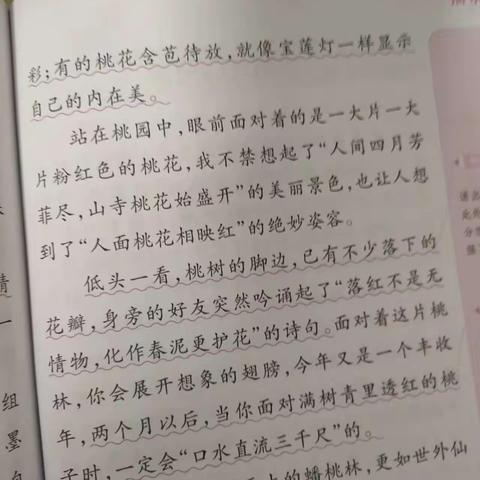 彩;有的桃花含苞待放,就像宝莲灯一样显示
自己的内在美。
站在桃园中,眼前面对着的是一大片一大
片粉红色的桃花,我不禁想起了“人间四月芳
菲尽,山寺桃花始盛开”的美丽景色,也让人想
到了“人面桃花相映红”的绝妙姿容。
低头一看,桃树的脚边,已有不少落下的
花瓣,身旁的好友突然吟诵起了“落红不是无
情物,化作春泥更护花”的诗句。面对着这片桃
林,你会展开想象的翅膀,今年又是一个丰收
年,两个月以后,当你面对满树青里透红的桃
子时,一定会“口水直流三千尺”的。
的蟠桃林,更如世外仙
情
一
组
墨